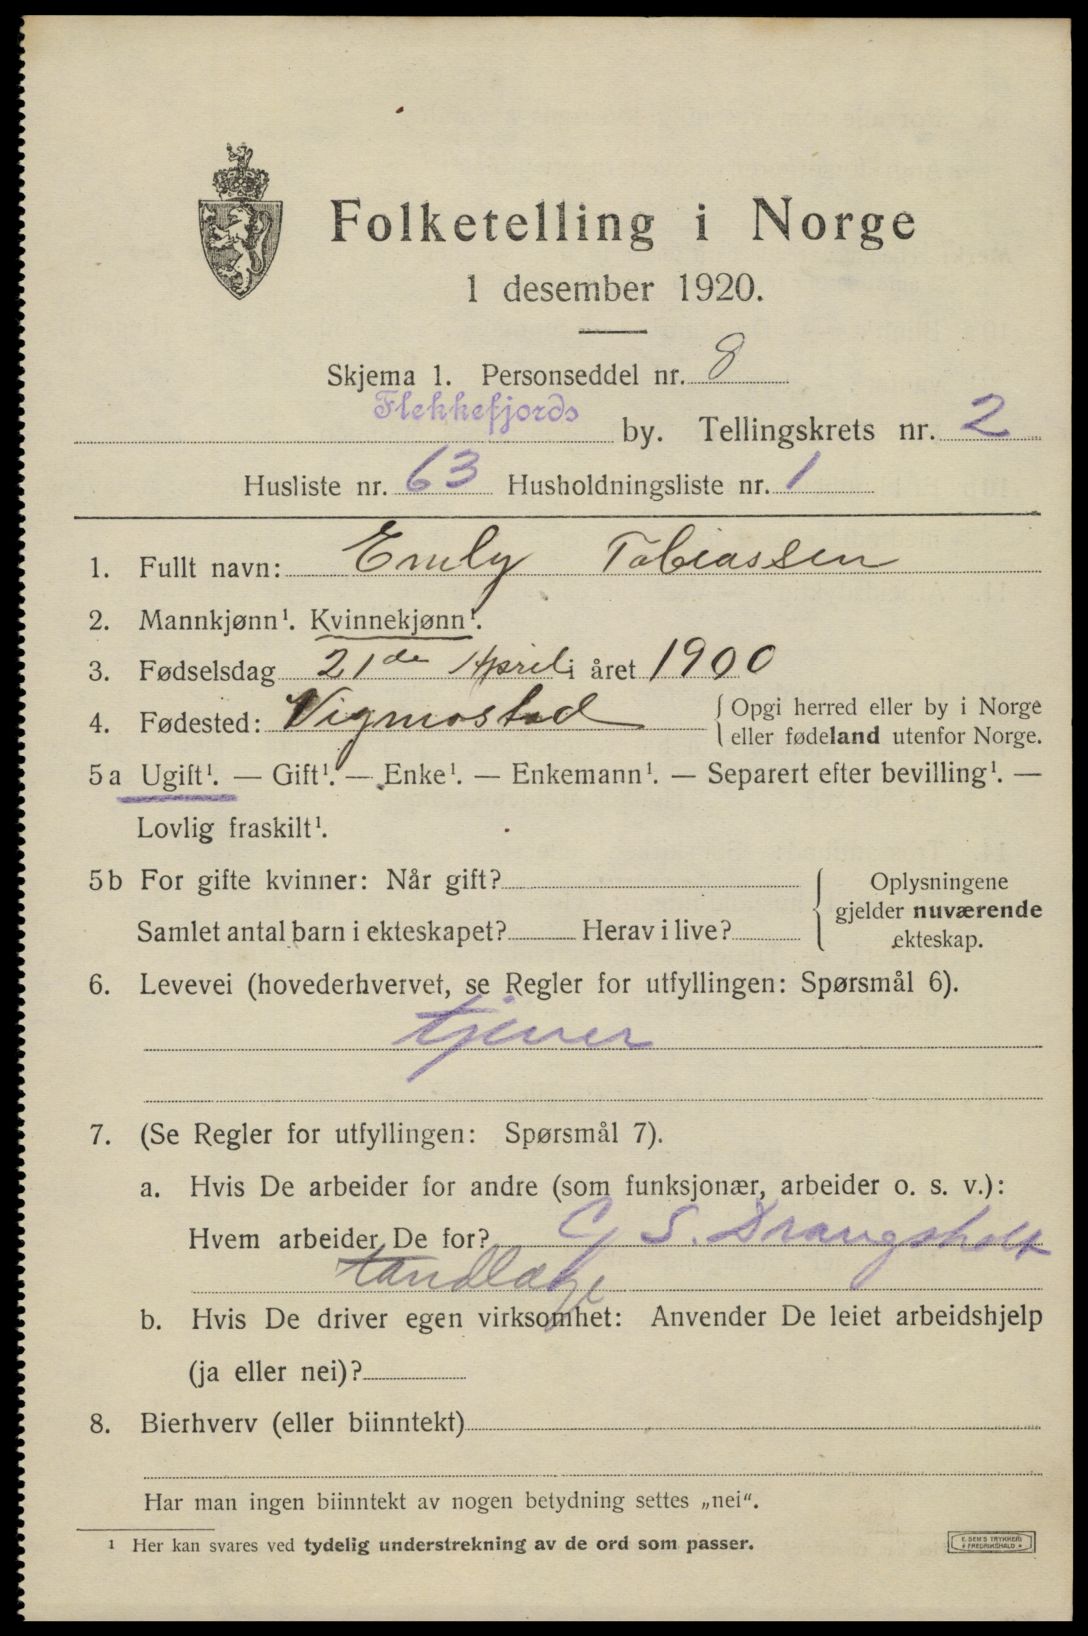 Folketelling i Norge
1 desember 1920.
Skjema 1. Personseddel nr. 8
Flekkefjords by. Tellingskrets nr. 2
Husliste nr. 63 Husholdningsliste nr. 1
1. Fullt navn: Emily Tobiassen
2. Mannkjønn¹. Kvinnekjønn¹.
3. Fødselsdag 21de April i året 1900
4. Fødested: Vigmostad { Opgi herred eller by i Norge
eller fødeland utenfor Norge.
5a Ugift¹. — Gift¹. — Enke¹. — Enkemann¹. — Separert efter bevilling¹. —
Lovlig fraskilt¹.
5b For gifte kvinner: Når gift? { Oplysningene
gjelder nuværende
Samlet antal barn i ekteskapet? Herav i live?
ekteskap.
6. Levevei (hovederhvervet, se Regler for utfyllingen: Spørsmål 6).
tjener
7. (Se Regler for utfyllingen: Spørsmål 7).
a. Hvis De arbeider for andre (som funksjonær, arbeider o. s. v.):
Hvem arbeider De for? G S. Drangsholt
tandlæge
b. Hvis De driver egen virksomhet: Anvender De leiet arbeidshjelp
(ja eller nei)?
8. Bierhverv (eller biinntekt)
Har man ingen biinntekt av nogen betydning settes „nei“.
¹ Her kan svares ved tydelig understrekning av de ord som passer.
E. SEM'S TRYKKERI
FREDRIKSHALD